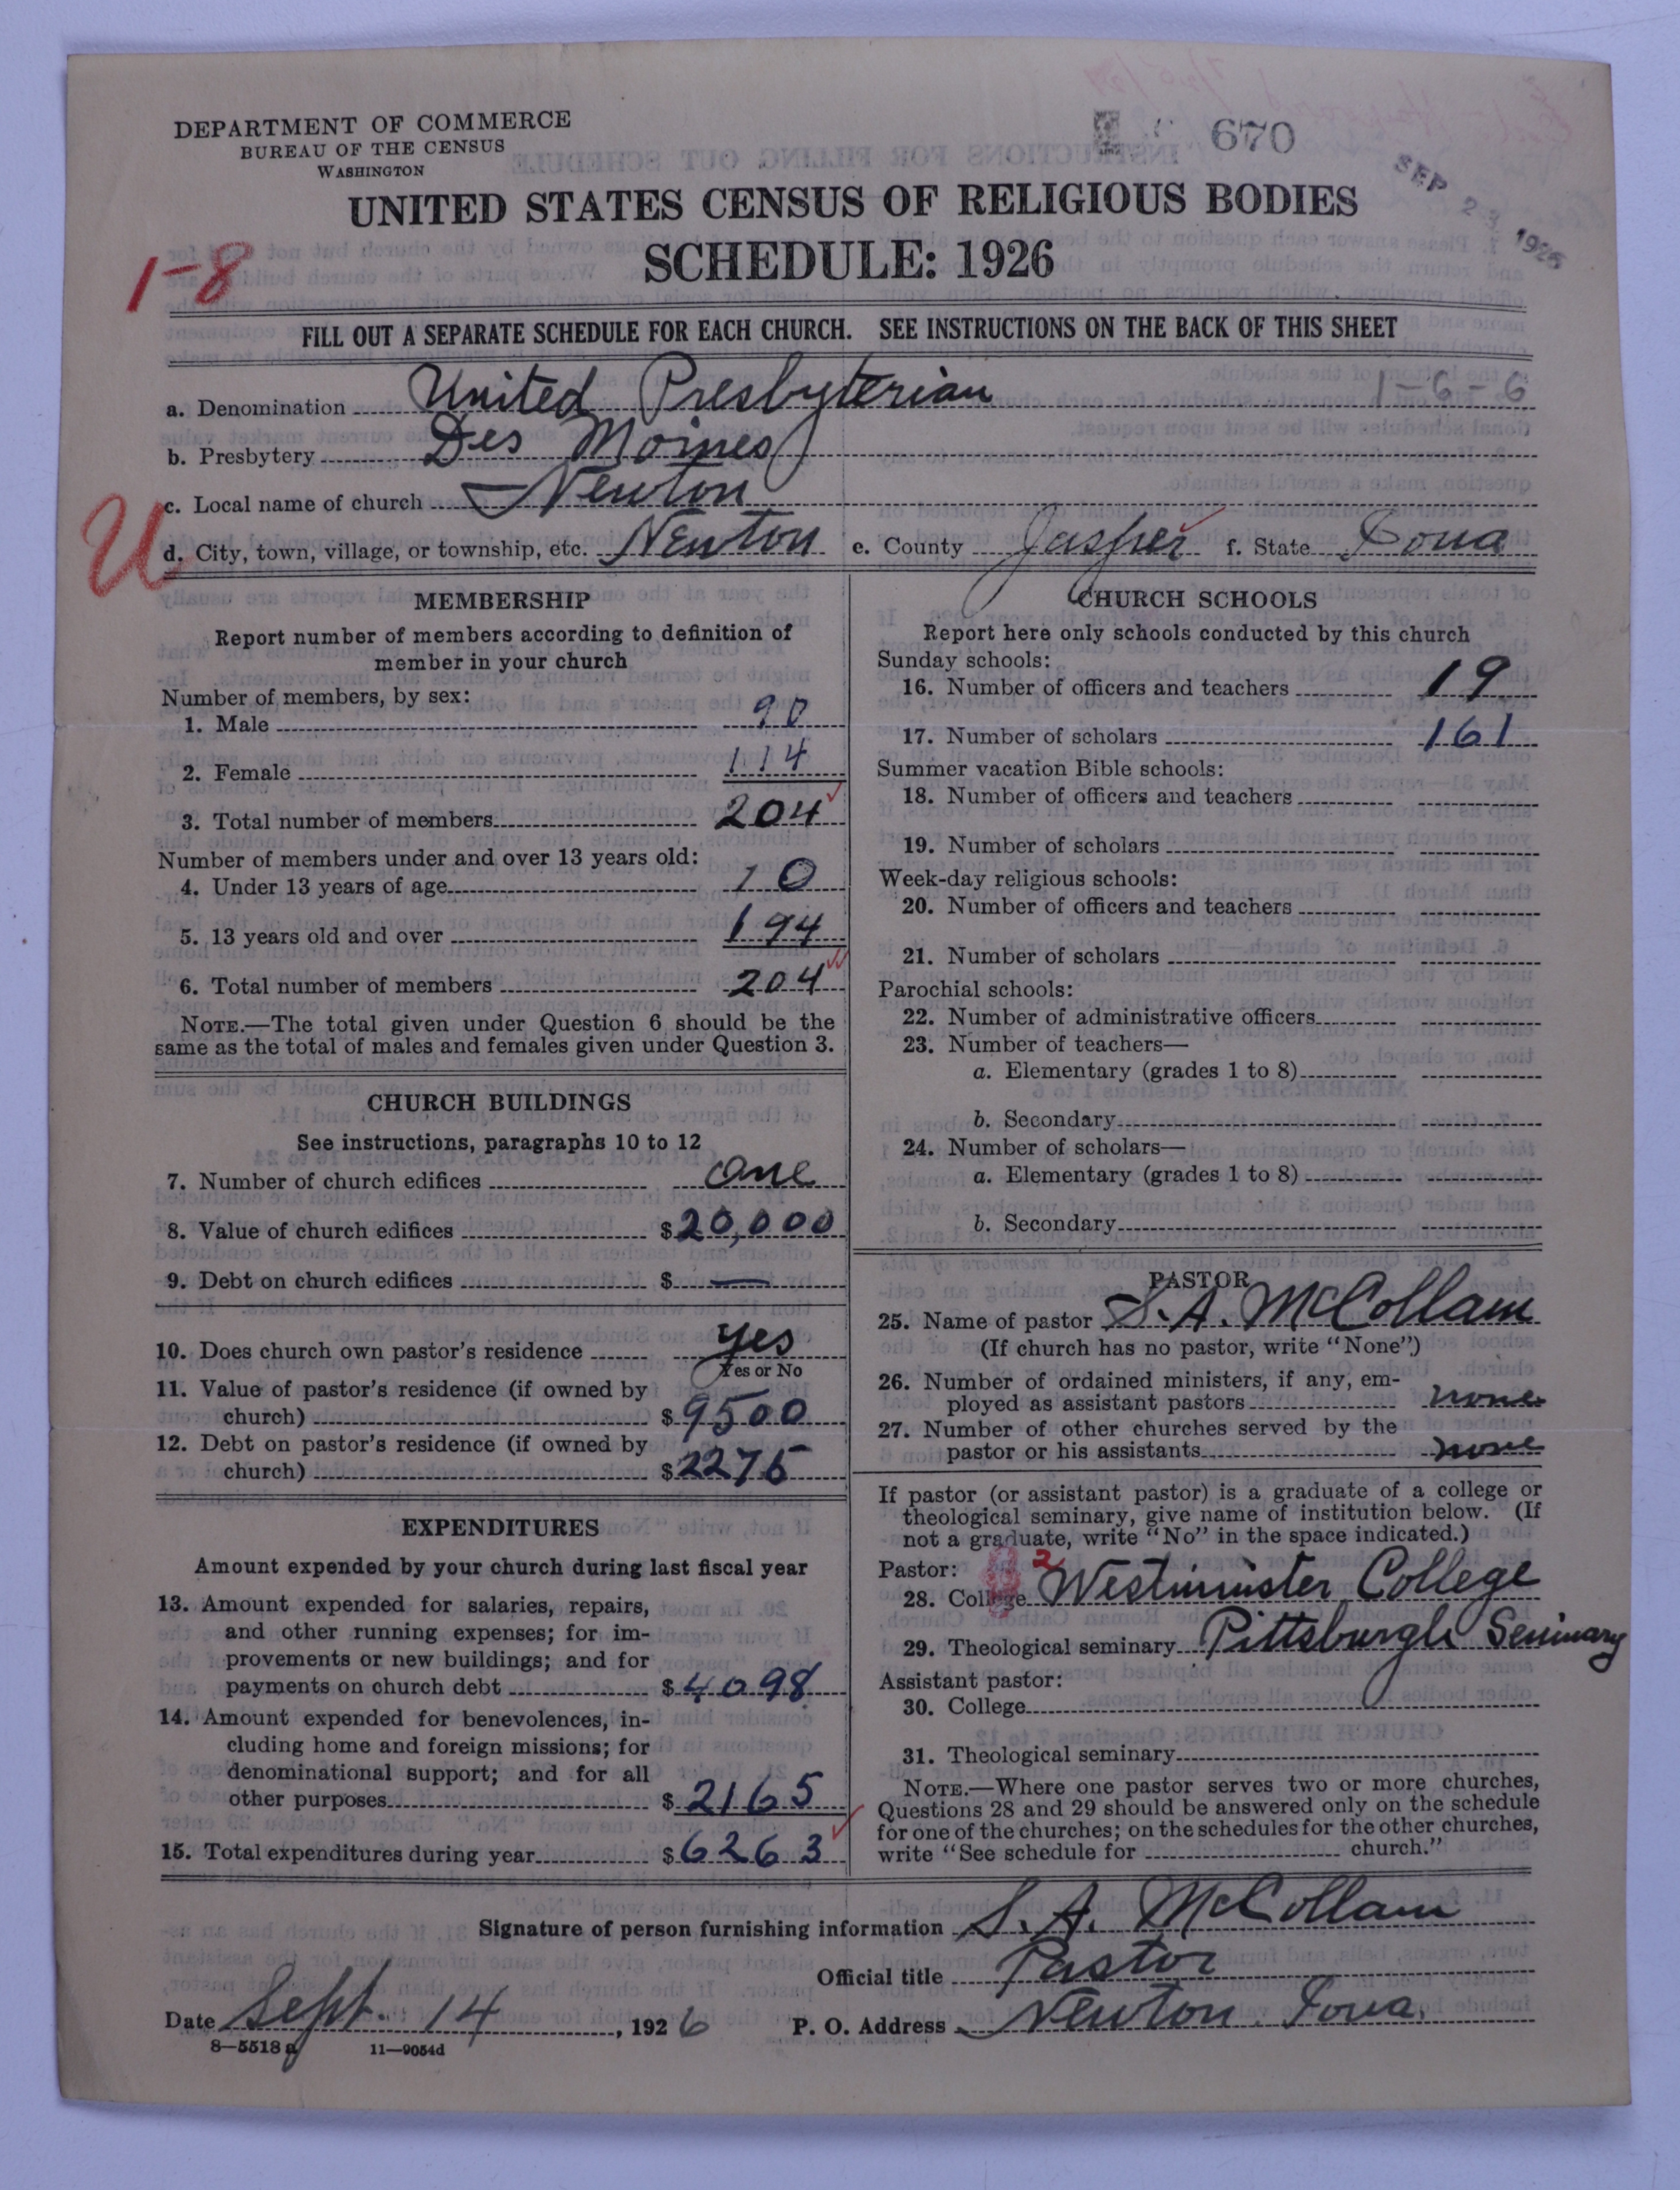 DEPARTMENT OF COMMERCE
BUREAU OF THE CENSUS
WASHINGTON
670
SEP 23 1926
UNITED STATES CENSUS OF RELIGIOUS BODIES
SCHEDULE: 1926
1-8
FILL OUT A SEPARATE SCHEDULE FOR EACH CHURCH. SEE INSTRUCTIONS ON THE BACK OF THIS SHEET
a. Denomination United Presbyterian 1-6-6
b. Presbytery Des Moines
c. Local name of church Newton
U
d. City, town, village, or township, etc. Newton e. County Jasper f. State Iowa
MEMBERSHIP
Report number of members according to definition of
member in your church
Number of members, by sex:
1. Male 90
2. Female 114
3. Total number of members 204
Number of members under and over 13 years old:
4. Under 13 years of age 10
5. 13 years old and over 194
6. Total number of members 204
NOTE.—The total given under Question 6 should be the
same as the total of males and females given under Question 3.
CHURCH BUILDINGS
See instructions, paragraphs 10 to 12
7. Number of church edifices one
8. Value of church edifices $20,000
9. Debt on church edifices $ —
10. Does church own pastor's residence yes
Yes or No
11. Value of pastor's residence (if owned by
church) $9500
12. Debt on pastor's residence (if owned by
church) $2275
EXPENDITURES
Amount expended by your church during last fiscal year
13. Amount expended for salaries, repairs,
and other running expenses; for im-
provements or new buildings; and for
payments on church debt $4098
14. Amount expended for benevolences, in-
cluding home and foreign missions; for
denominational support; and for all
other purposes $2165
15. Total expenditures during year $6263
CHURCH SCHOOLS
Report here only schools conducted by this church
Sunday schools:
16. Number of officers and teachers 19
17. Number of scholars 161
Summer vacation Bible schools:
18. Number of officers and teachers
19. Number of scholars
Week-day religious schools:
20. Number of officers and teachers
21. Number of scholars
Parochial schools:
22. Number of administrative officers
23. Number of teachers—
a. Elementary (grades 1 to 8)
b. Secondary
24. Number of scholars—
a. Elementary (grades 1 to 8)
b. Secondary
PASTOR
25. Name of pastor S. A. McCollam
(If church has no pastor, write "None")
26. Number of ordained ministers, if any, em-
ployed as assistant pastors none
27. Number of other churches served by the
pastor or his assistants none
If pastor (or assistant pastor) is a graduate of a college or
theological seminary, give name of institution below. (If
not a graduate, write "No" in the space indicated.)
Pastor: 2
28. College Westminister College
29. Theological seminary Pittsburgh Seminary
Assistant pastor:
30. College
31. Theological seminary
NOTE.—Where one pastor serves two or more churches,
Questions 28 and 29 should be answered only on the schedule
for one of the churches; on the schedules for the other churches,
write "See schedule for church."
Signature of person furnishing information S. A. McCollam
Official title Pastor
Date Sept. 14, 1926 P. O. Address Newton. Iowa.
8—5518 a 11—9054d